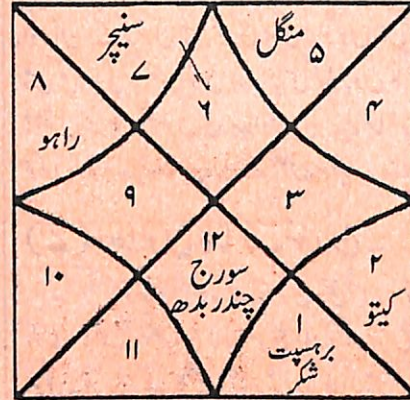 سنیچر
۷
منگل
۵
۸
راہو
۶
۴
۹
۳
۱۰
۱۲
سورج
چندر بدھ
۲
کیتو
۱۱
۱
برہسپت
شکر